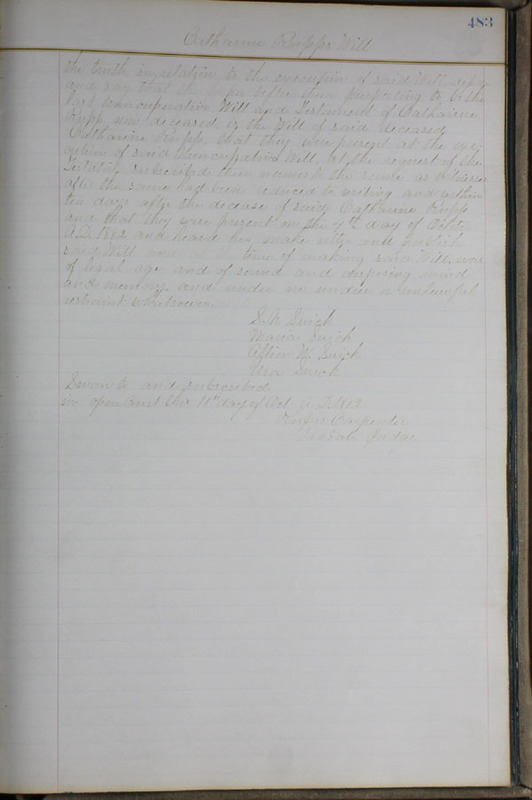 483
Catharine Rupps Will
the truth in relation to the execution of said Will depose
and say that the paper before them purporting to be the
last Noncupative Will and Testament of Catharine
Rupp, now deceased is the Will of said deceased
Catharine Rupp, that they were present at the
of said Noncupative Will, at the request of the
Testatrix subscribed their names to the same as witnesses
after the same had been reduced to writing and within
ten days after the decease of said Catharine Rupp
and that they were present on the day of
A.D. 1882 and heard her make utter and publish
said Will and at the time of making said Will, was
of legal age and of sound and disposing mind
and memory and under no undue or unlawful
restraint whatsoever.
S. N.
Maria
M.
Sworn to and subscribed
in open Court this 11th day of Oct. A.D. 1882
Rufus Carpenter
Probate Judge